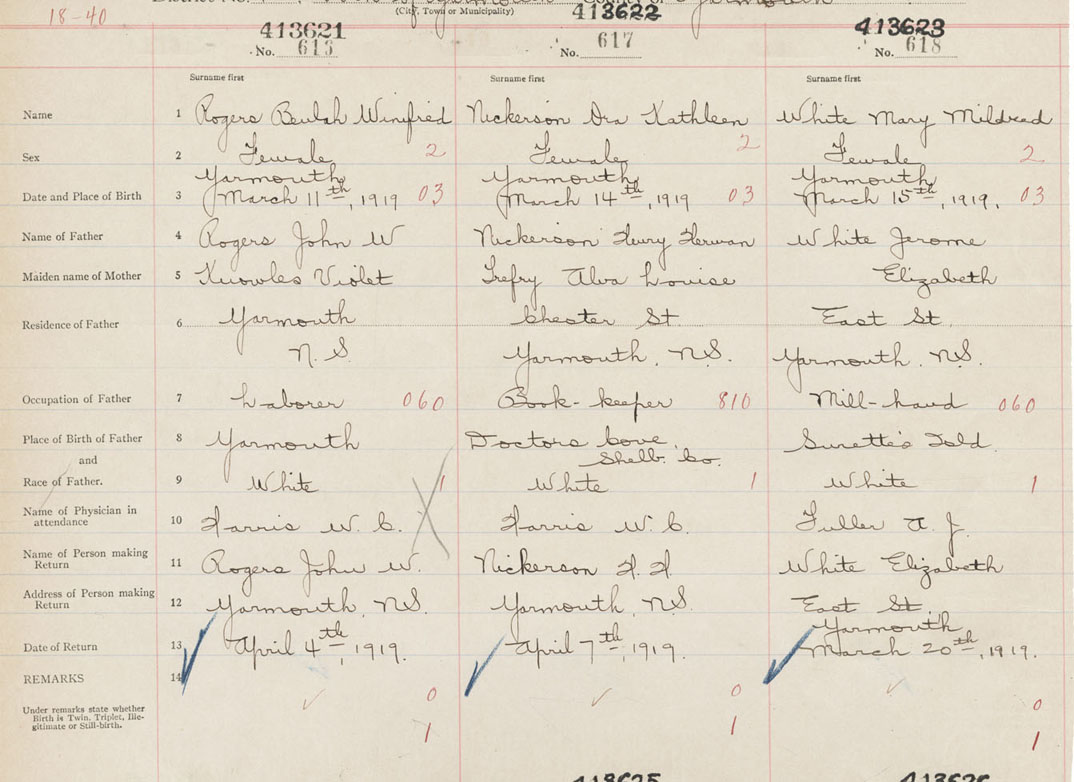 District No.
(City, Town or Municipality)
18-40
413621 413622 413623
No. 613 No. 617 No. 618
Surname first Surname first Surname first
Name 1 Rogers Beulah Winifred Nickerson Kathleen White Mary Mildred
Sex 2 Female 2 Female 2 Female 2
Yarmouth Yarmouth Yarmouth
Date and Place of Birth 3 March 11th, 1919 03 March 14th, 1919 03 March 15th, 1919. 03
Name of Father 4 Rogers John W Nickerson Henry Herman White Jerome
Maiden name of Mother 5 Knowles Violet Trefry Alva Louise Elizabeth
Residence of Father 6 Yarmouth Chester St. East St.
N.S. Yarmouth, N.S. Yarmouth, N.S.
Occupation of Father 7 Laborer 060 Book-keeper 810 Mill-hand 060
Place of Birth of Father 8 Yarmouth Doctors Cove, Surette's Isld.
and Shelb. Co.
Race of Father. 9 White 1 White 1 White 1
Name of Physician in
attendance 10 Harris W. C. Harris W. C. Fuller A. J.
Name of Person making
Return 11 Rogers John W. Nickerson H. H. White Elizabeth
Address of Person making
Return 12 Yarmouth, N.S. Yarmouth, N.S. East St.
Yarmouth
Date of Return 13 April 4th, 1919. April 7th, 1919. March 20th, 1919.
REMARKS 14
0 0 0
Under remarks state whether
Birth is Twin, Triplet, Ille-
gitimate or Still-birth.
1 1 1
413625